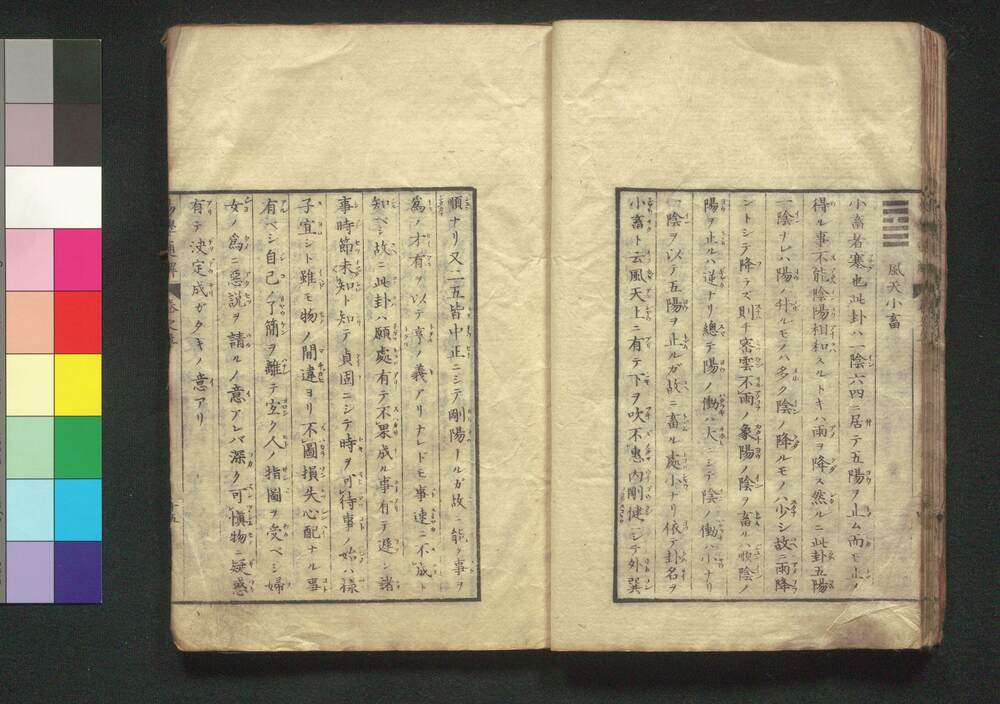 風天小畜
小畜者塞也此卦ハ一陰六四ニ居テ五陽ヲ止ム而モ止ノ
得ル事不能陰陽相和スルトキハ雨ヲ降ス然ルニ此卦五陽
一陰ナレハ陽ノ升ルモノハ多ク陰ノ降ルモノハ少シ故ニ雨降
ントシテ降ラズ則チ密雲不雨ノ象陽ノ陰ヲ畜ルハ快陰ノ
陽ヲ止ルハ逆ナリ總テ陽ノ働ハ大ニシテ陰ノ働ハ小ナリ
一陰ヲ以テ五陽ヲ止ルガ故ニ畜ル處小ナリ依テ卦名ヲ
小畜ト云風天上ニ有テ下ヲ吹不惠内剛健ニシテ外巽
順ナリ又二五皆中正ニシテ剛陽ノルガ故ニ能ク事ヲ
爲ノオ有ヲ以テ亨ノ義アリナレドモ事速ニ不成ト
知ベシ故ニ此卦ハ願處有テ不果成ル事有テ遲シ諸
事時節未知ト知テ貞固ニシテ時ヲ可待事ノ始ハ様
子宜シト雖モ物ノ間違ヨリ不圖損失心配ナル事
有ベシ自己ノ了簡ヲ離テ宜ク人ノ指圖ヲ受ベシ婦
女ノ爲ニ惡説ヲ請ルノ意アレバ深ク可愼物ニ疑惑
有テ決定成ガタキノ意アリ